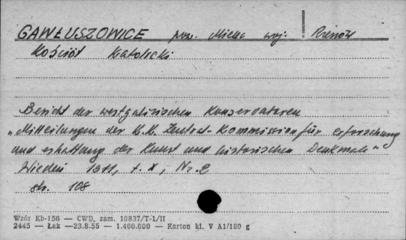 GAWŁUSZOWICE pow. Mielec woj. Rzeszów
Kościół katolicki
Bericht der westgalizischen Konservatoren
„Mitteilungen der k.k. Zentral-Kommission für Erforschung
und Erhaltung der Kunst und historischen Denkmale"
Wiedeń 1911, t. X, Nr. 2
str. 108
Wzór Kb-156 — CWD, zam. 10837/T-1/II
2445 — Łak —23.8.55 — 1.400.000 — Karton kl. V A1/180 g